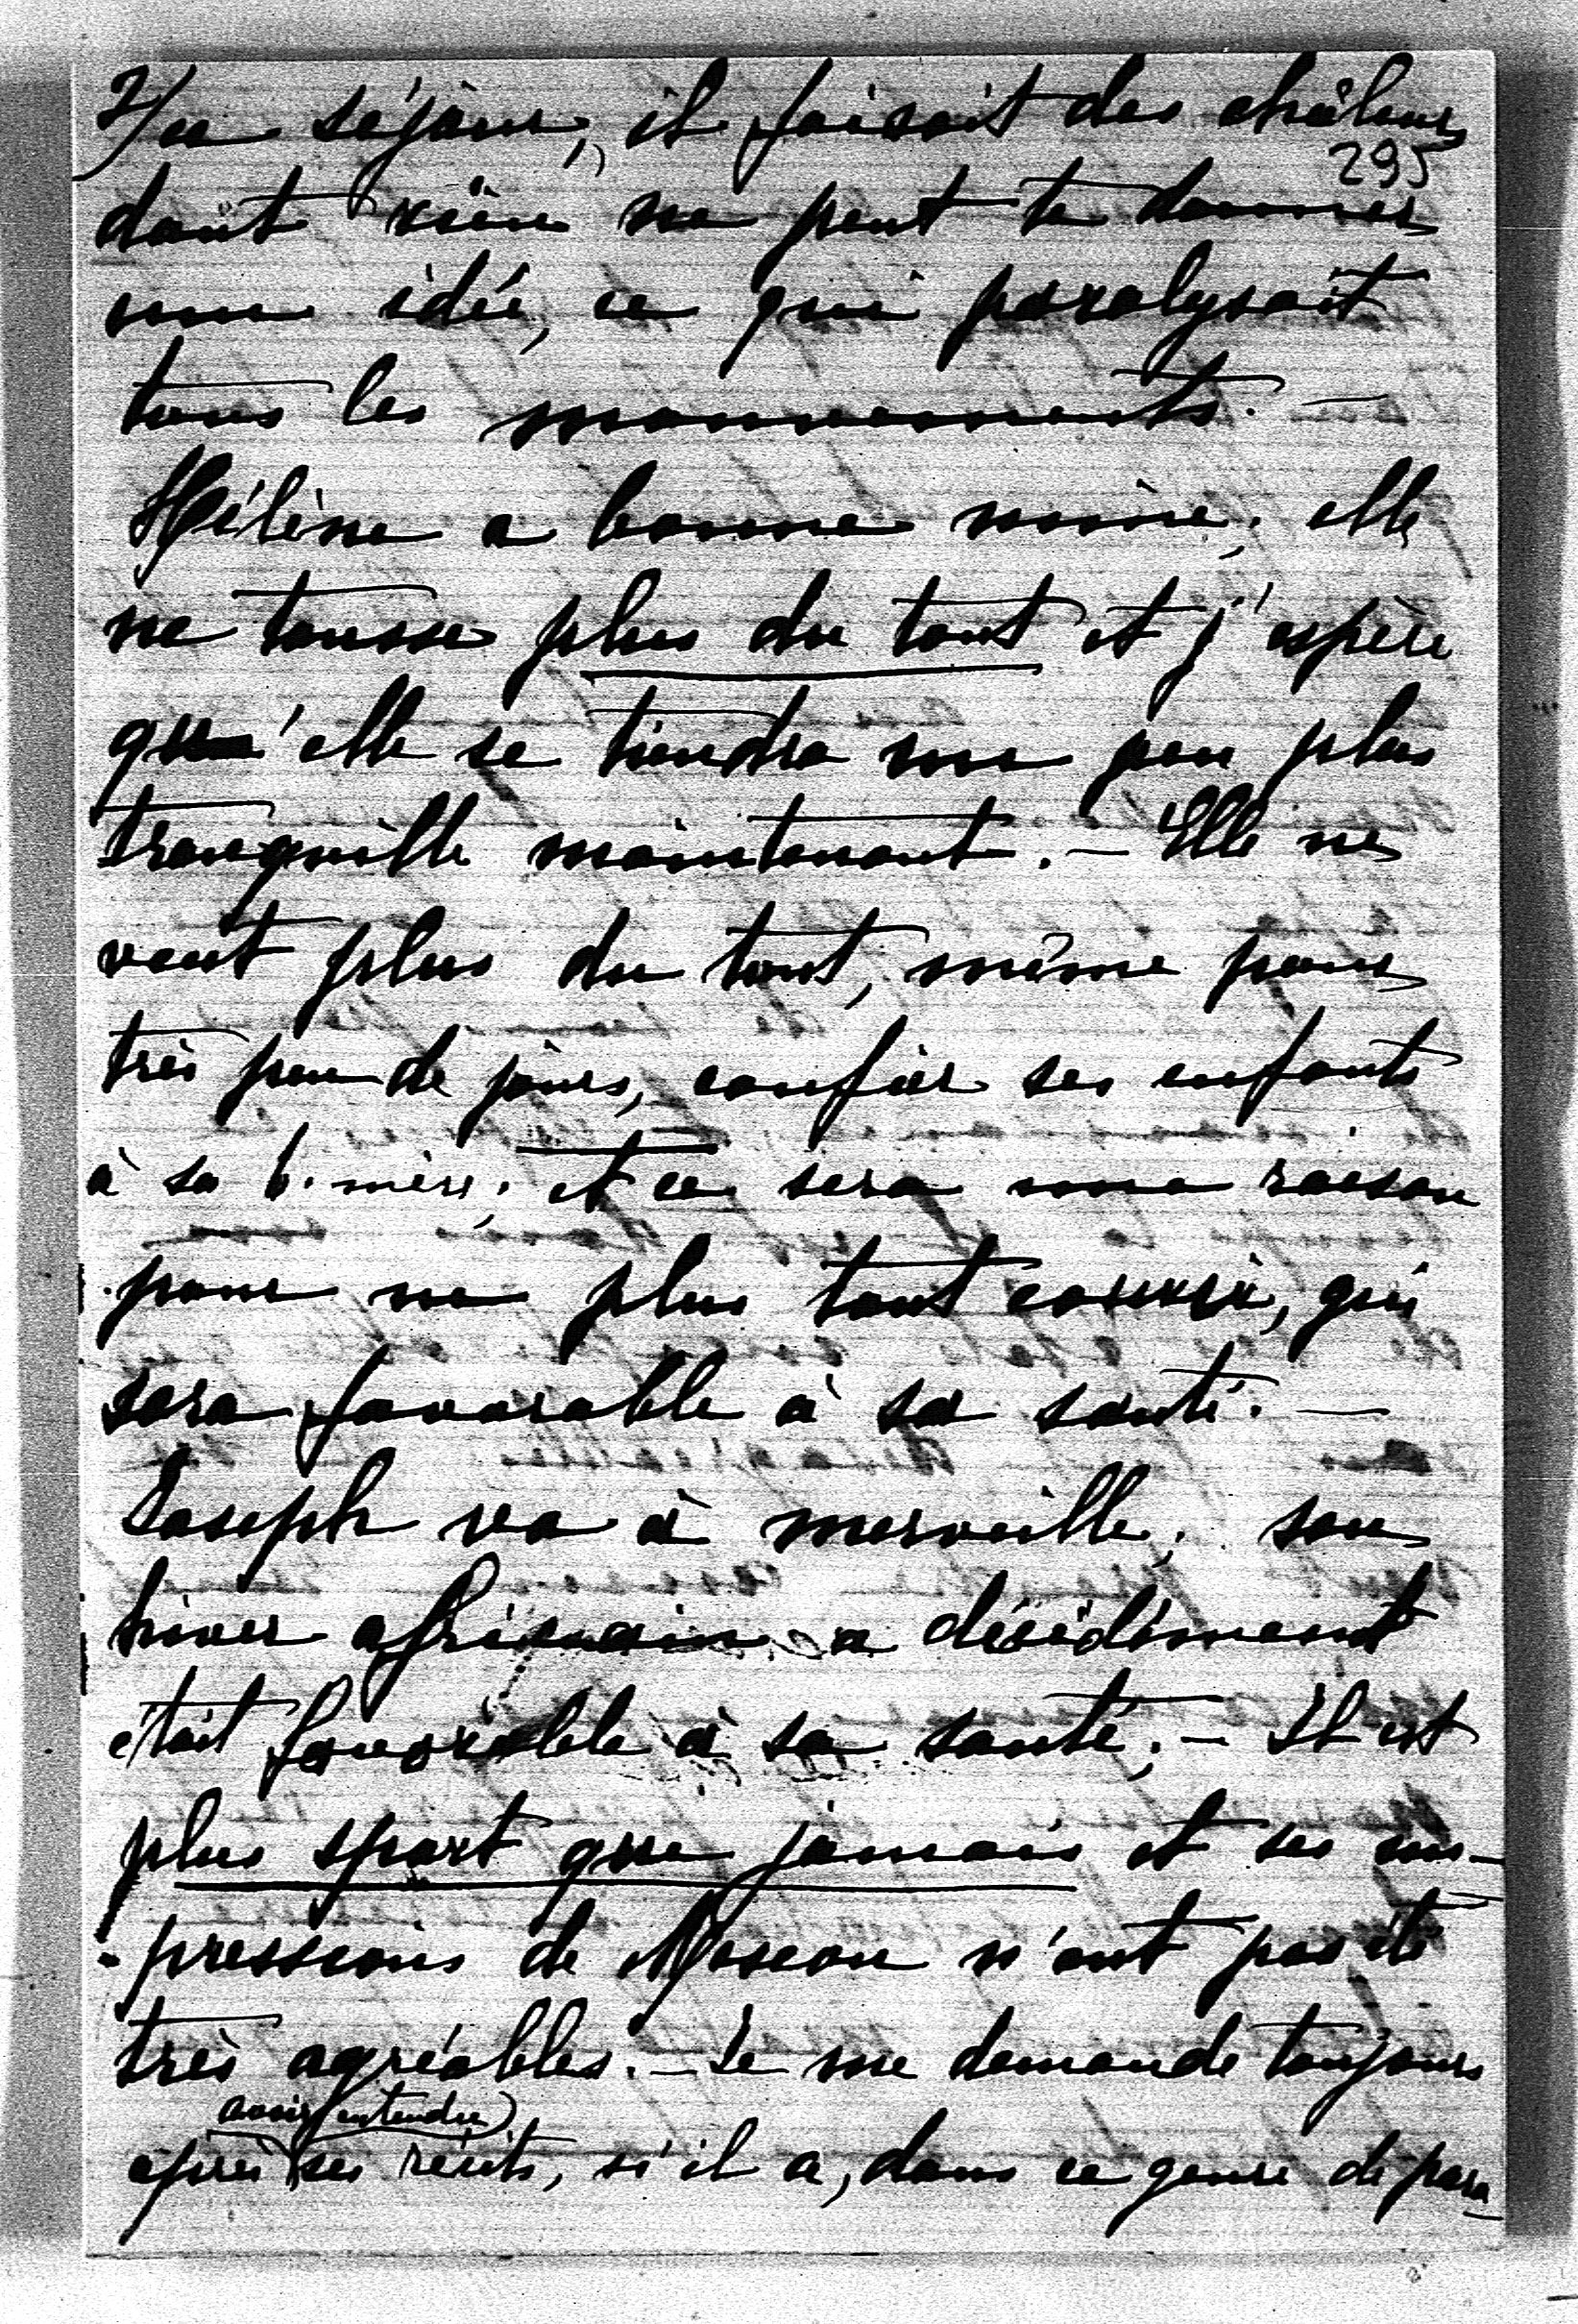 2/ ce séjour, il faisait des chaleurs
295
dont rien ne peut te donner
une idée, ce qui paralysait
tous les mouvements. —
Hélène a bonne mine; elle
ne tousse plus du tout et j'espère
qu'elle se tiendra un peu plus
tranquille maintenant. — Elle ne
veut plus du tout, même pour
très peu de jours, confier ses enfants
à sa b. mère; et ce sera une raison
pour ne plus tant courir, qui
sera favorable à sa santé. —
Joseph va à merveille; son
hiver africain a décidément
était favorable à sa santé; — Il est
plus sport que jamais et ses im-
-pressions de Moscou n'ont pas été
très agréables. — Je me demande toujours
avoir entendu
après ses récits, s'il a, dans ce genre de para-